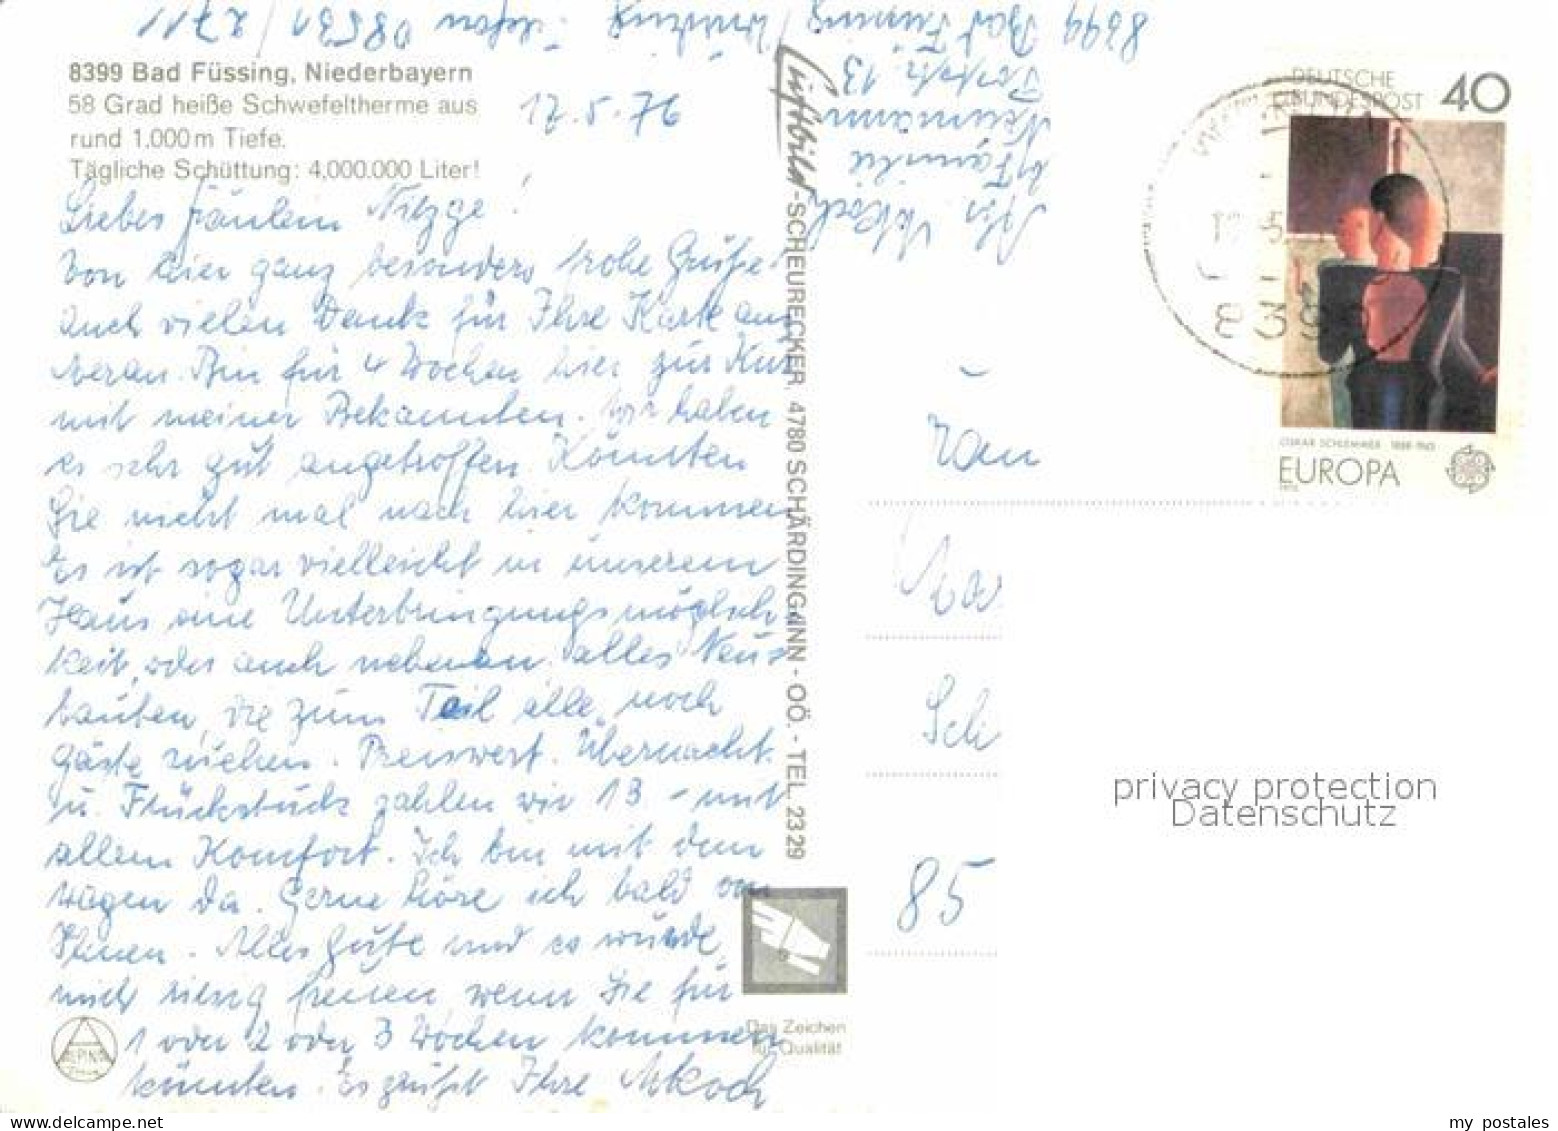 8399 Bad Füssing, Niederbayern
58 Grad heiße Schwefeltherme aus
rund 1.000 m Tiefe.
Tägliche Schüttung: 4,000.000 Liter!
17.5.76
Liebes Fräulein
Von hier ganz besonders frohe Grüße!
auch vielen Dank für Ihre Karte aus
Meran. Bin für 4 Wochen hier zur Kur
mit meiner Bekannten. Wir haben
es sehr gut angetroffen. Könnten
Sie nicht mal nach hier kommen
Es ist sogar vielleicht in unserem
Haus eine Unterbringungsmöglich-
keit, oder auch nebenan. alles Neu-
bauten, die zum Teil alle noch
Gäste suchen. Preiswert. Übernacht.
u. Frückstück zahlen wir 13.- mit
allem Komfort. Ich bin mit dem
Wagen da. Gerne höre ich bald von
Ihnen. Alles Gute und es würde
mich riesig freuen wenn Sie für
1 oder 2 oder 3 Wochen kommen
könnten. Es grüßt Ihre
8399 Bad Füssing / Würding Telefon 08531 / 2711
Poststr. 13
Neumann
b/Familie
Luftbild-SCHEURECKER 4780 SCHÄRDING/INN - OÖ. - TEL. 2329
Das Zeichen
für Qualität
ALPINA
DEUTSCHE
BUNDESPOST 40
OSKAR SCHLEMMER 1888-1943
EUROPA
1975
85
privacy protection
Datenschutz
my postales